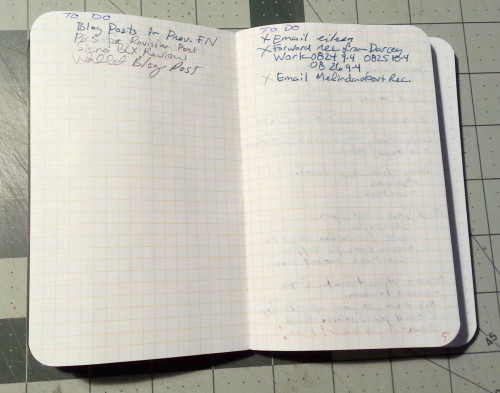 TO DO
Blog Posts in Prev. FN
Pics for Revision Post
Signo BLX Review
Wallet Blog Post
TO DO
x Email eileen
x Forward rec. from Darcey
Work 0824 9-4 0825 10-4
0826 9-4
x Email Melinda about Rec.
5
45